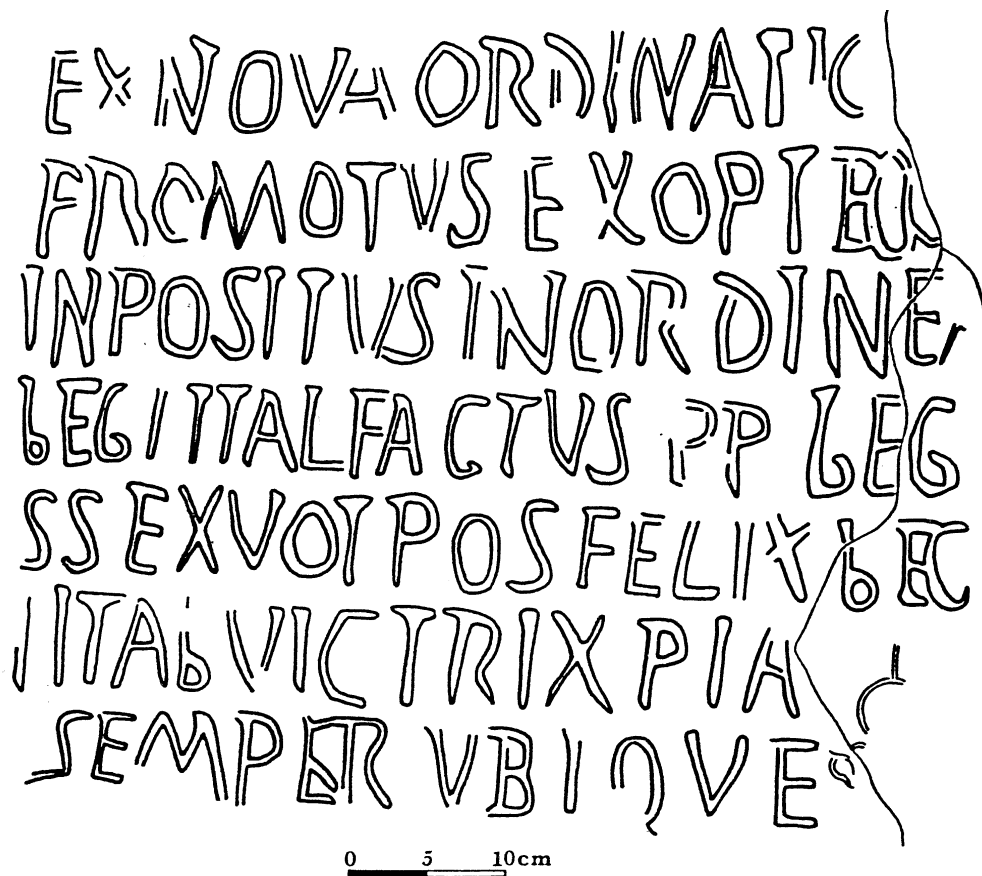 EX NOVA ORDINATIC
FRCMOTVS EX OPT
INPOSITVS IN ORDINE
LEG II ITAL FACTVS PP LEG
SS EX VOT POS FELIX LEG
II ITAL VICTRIX PIA
SEMPER VBIQVE
0 5 10cm